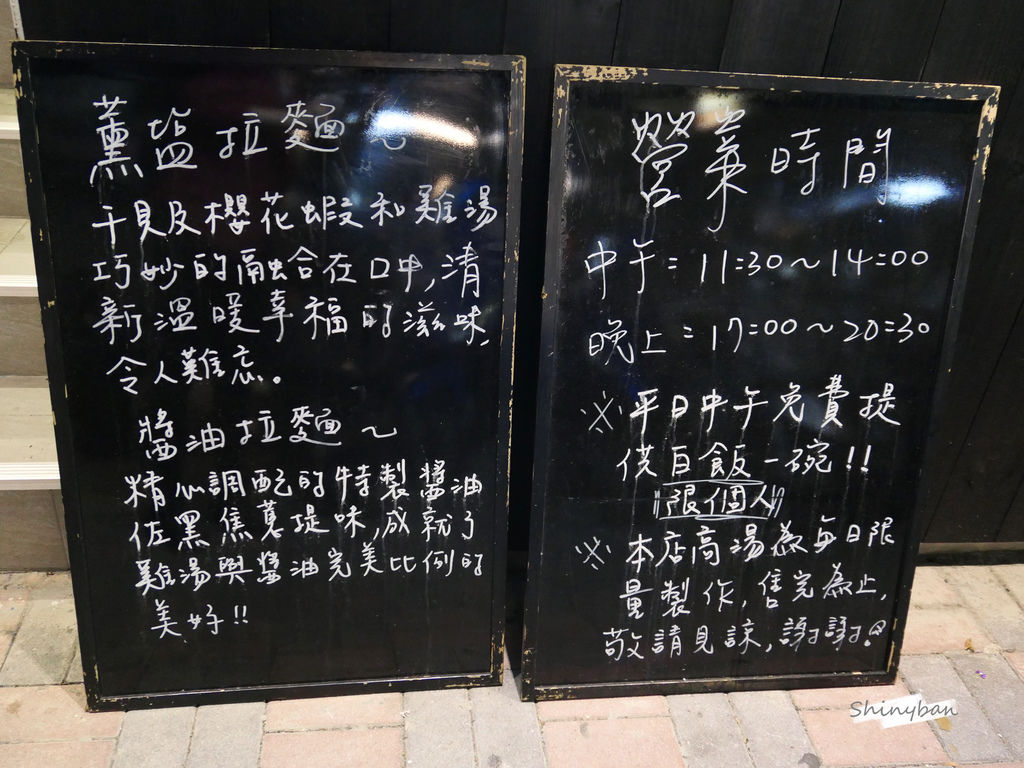 薰塩拉麵～
干貝及櫻花蝦和雞湯
巧妙的融合在口中,清
新溫暖幸福的滋味,
令人難忘。
醬油拉麵～
精心調配的特製醬油
佐黑焦蔥提味,成就了
雞湯與醬油完美比例的
美好!!
營業時間
中午=11:30～14:00
晚上=17:00～20:30
※平日中午免費提
供白飯一碗!!
"限個人"
※本店高湯為每日限
量製作,售完為止,
敬請見諒,謝謝!
Shinyban